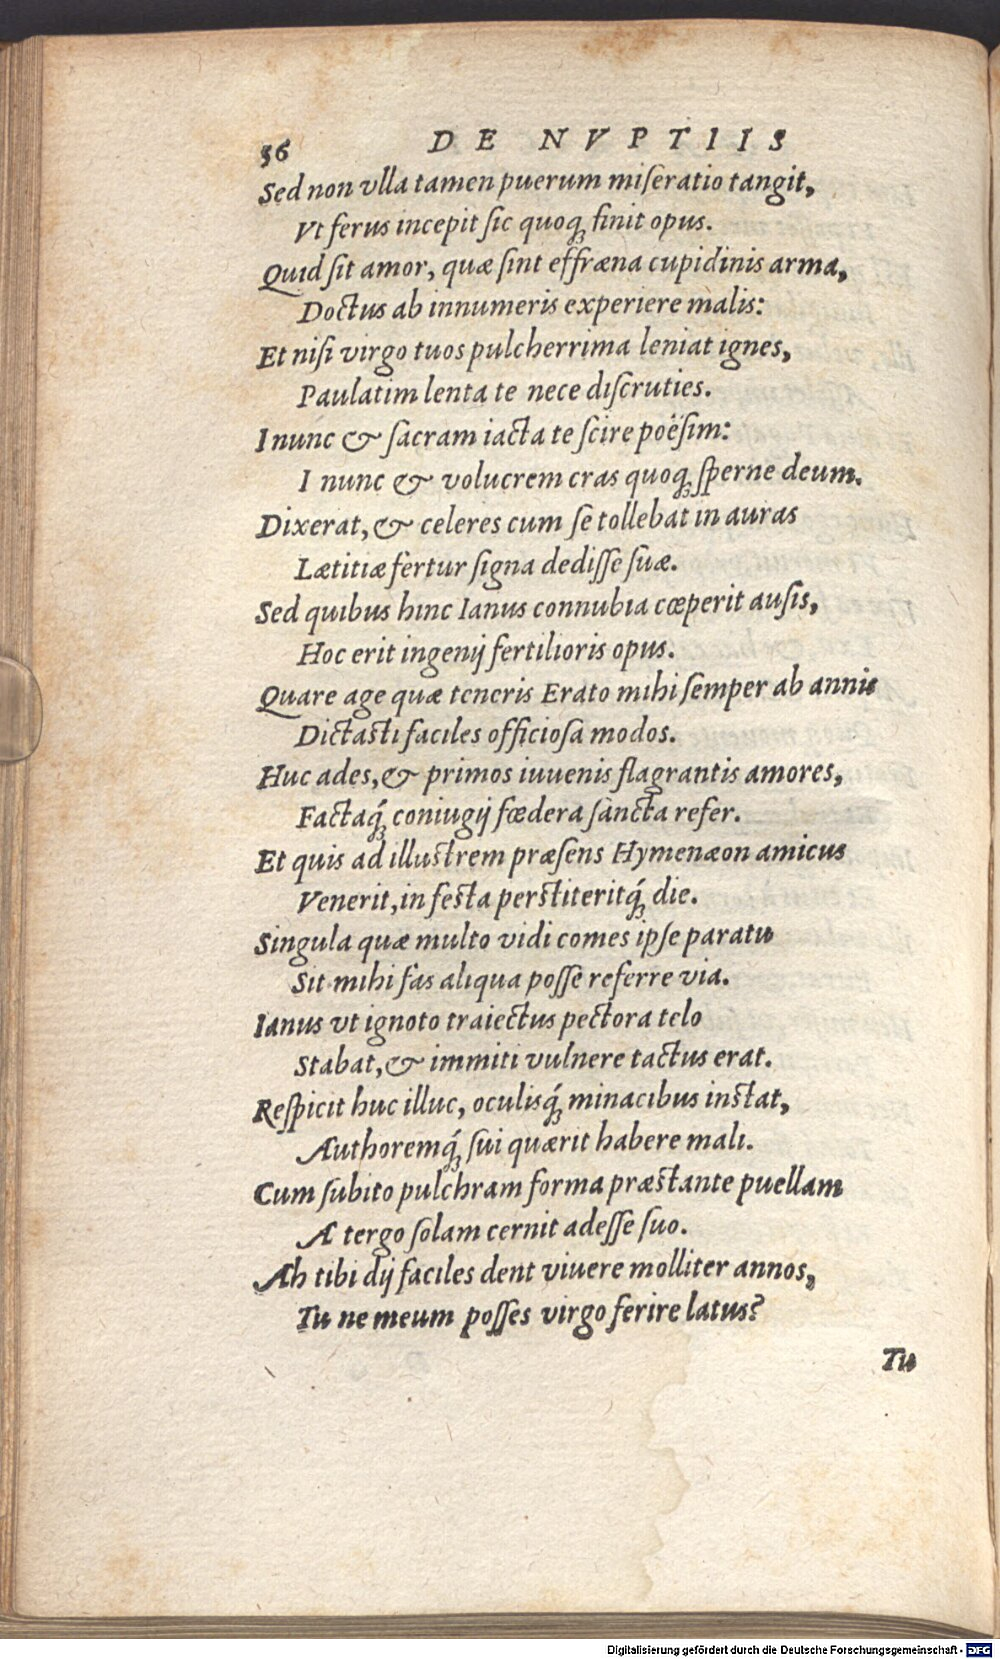 56 DE NVPTIIS
Sed non vlla tamen puerum miſeratio tangit,
Vt ferus incepit ſic quoq; finit opus.
Quid ſit amor, quæ ſint effræna cupidinis arma,
Doctus ab innumeris experiere malis:
Et niſi virgo tuos pulcherrima leniat ignes,
Paulatim lenta te nece diſcruties.
I nunc & ſacram iacta te ſcire poëſim:
I nunc & volucrem cras quoq; ſperne deum.
Dixerat, & celeres cum ſe tollebat in auras
Lætitiæ fertur ſigna dediſſe ſuæ.
Sed quibus hinc Ianus connubia cœperit auſis,
Hoc erit ingenij fertilioris opus.
Quare age quæ teneris Erato mihi ſemper ab annis
Dictaſti faciles officioſa modos.
Huc ades, & primos iuuenis flagrantis amores,
Factaq́; coniugij fœdera ſancta refer.
Et quis ad illuſtrem præſens Hymenæon amicus
Venerit, in feſta perſtiteritq́; die.
Singula quæ multo vidi comes ipſe paratu
Sit mihi fas aliqua poſſe referre via.
Ianus vt ignoto traiectus pectora telo
Stabat, & immiti vulnere tactus erat.
Reſpicit huc illuc, oculisq́; minacibus inſtat,
Authoremq́; ſui quærit habere mali.
Cum ſubito pulchram forma præſtante puellam
A tergo ſolam cernit adeſſe ſuo.
Ah tibi dij faciles dent viuere molliter annos,
Tu ne meum poſſes virgo ferire latus?
Tu
Digitalisierung gefördert durch die Deutsche Forschungsgemeinschaft - DFG